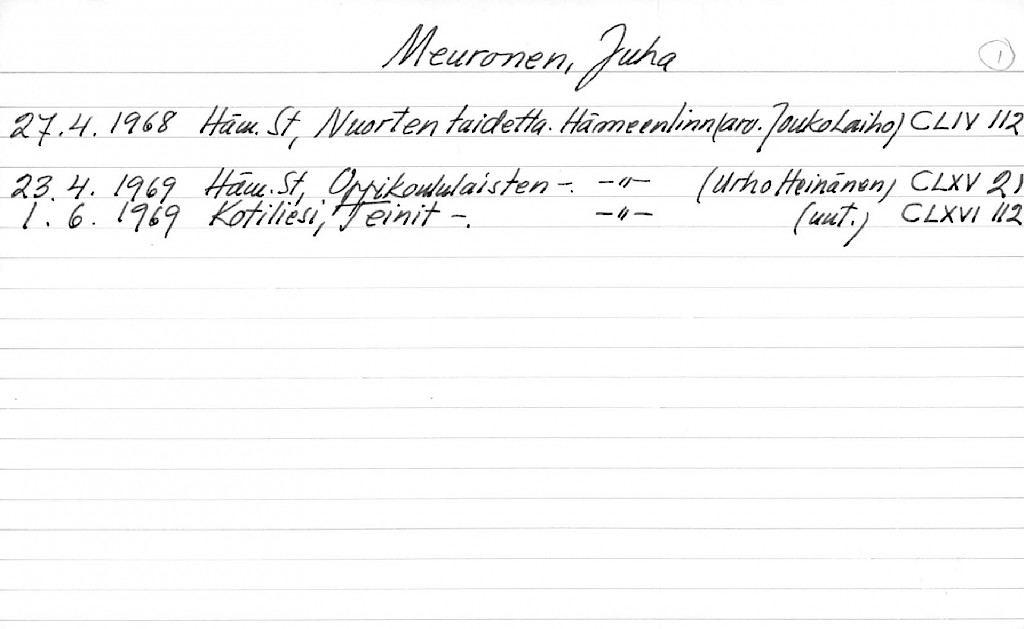 Meuronen, Juha 1
27.4. 1968 Häm. St, Nuorten taidetta. Hämeenlinn (arv. Jouko Laiho) CLIV 112
23.4. 1969 Häm. St, Oppikoululaisten -. -〃- (Urho Heinänen) CLXV 21
1.6. 1969 Kotiliesi, Teinit -. -〃- (uut.) CLXVI 112